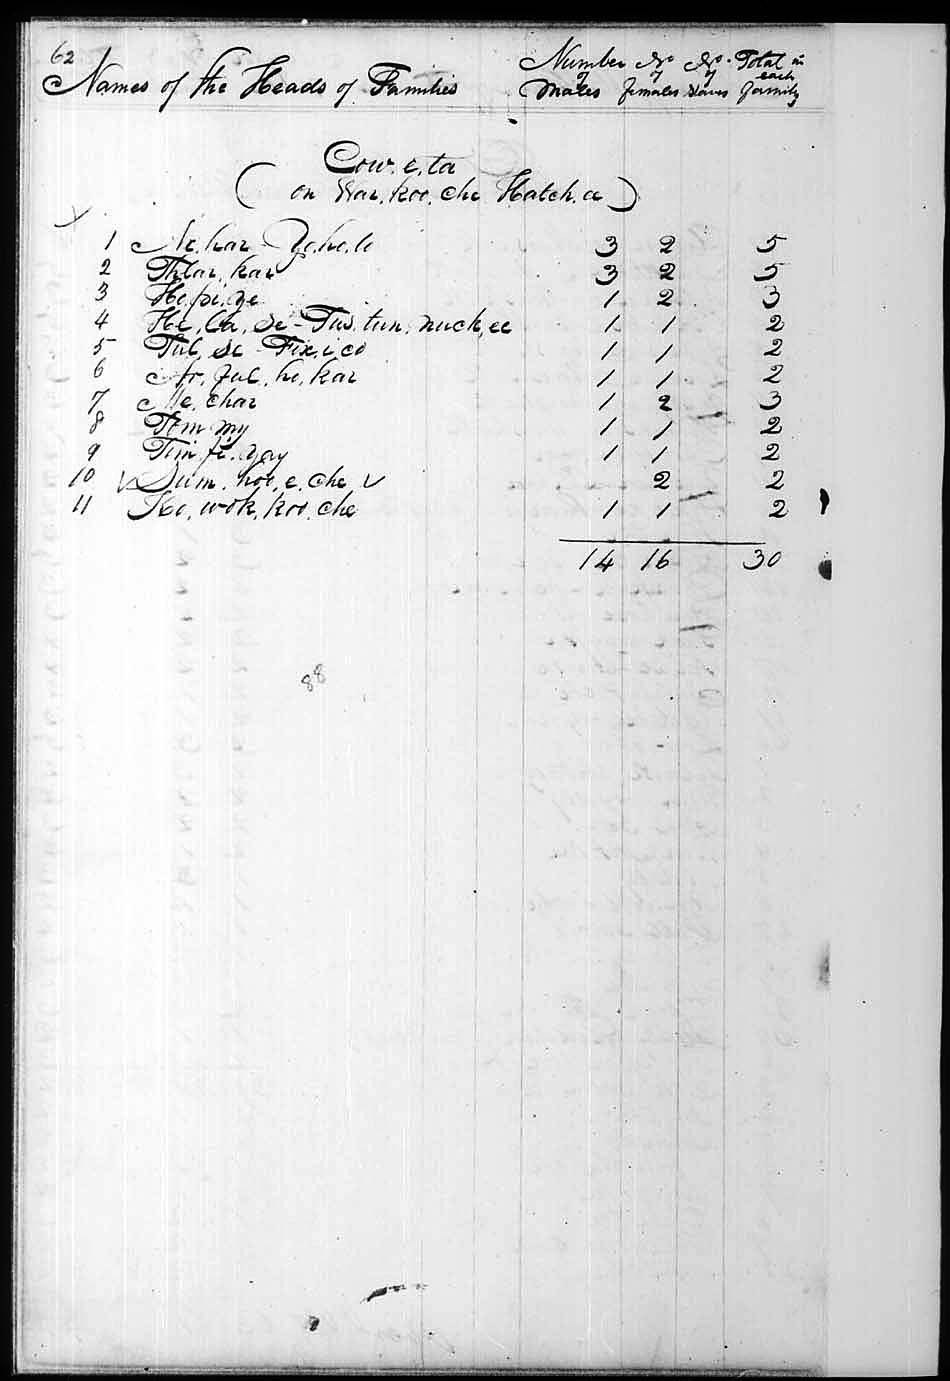 62
Names of the Heads of Families Number of Males No of females No. of Slaves Total in each family
Cow.e.ta
(on War.koo.che Hatch.ee)
1 Ne.har Yo.ho.lo 3 2 5
2 Thlar.kar 3 2 5
3 Ho.poi.ye 1 2 3
4 He.la.se-Tus.tun.nuck.ee 1 1 2
5 Tul.se Fix.i.co 1 1 2
6 Ar.ful.ho.kar 1 1 2
7 Me.char 1 2 3
8 Tom my 1 1 2
9 Tim.fi.yay 1 1 2
10 Sum.hoo.e.che 2 2
11 Ko.wok.koo.che 1 1 2
14 16 30
88